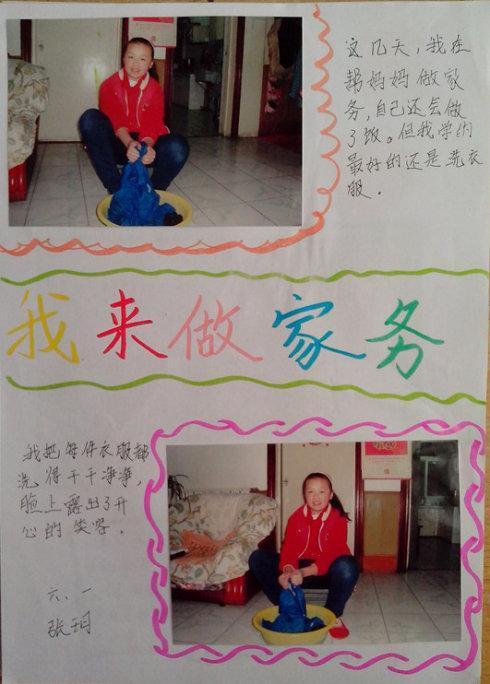 这几天,我在
帮妈妈做家
务,自己还会做
了饭。但我学的
最好的还是洗衣
服。
我来做家务
我把每件衣服都
洗得干干净净,
脸上露出了开
心的笑容。
六、一
张玥